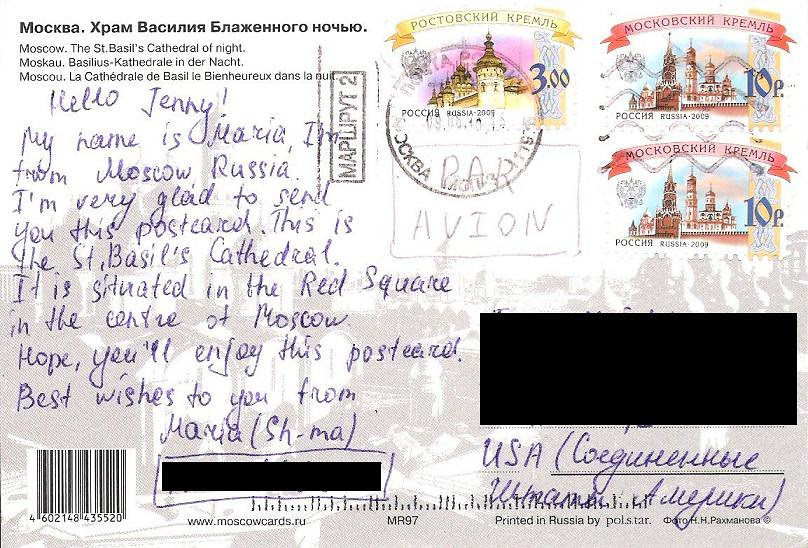 Москва. Храм Василия Блаженного ночью.
Moscow. The St.Basil's Cathedral of night.
Moskau. Basilius-Kathedrale in der Nacht.
Moscou. La Cathédrale de Basil le Bienheureux dans la nuit
Hello Jenny!
My name is Maria, I'm
from Moscow Russia.
I'm very glad to send
you this postcard. This is
the St. Basil's Cathedral.
It is situated in the Red Square
in the centre of Moscow
Hope, you'll enjoy this postcard.
Best wishes to you from
Maria (Sh-ma)
4 602148 435520
www.moscowcards.ru
MR97
МАРШРУТ 2
РОСТОВСКИЙ КРЕМЛЬ
3.00
РОССИЯ RUSSIA-2009
МОСКВА
PAR
AVION
МОСКОВСКИЙ КРЕМЛЬ
10р.
РОССИЯ RUSSIA-2009
МОСКОВСКИЙ КРЕМЛЬ
10р.
РОССИЯ RUSSIA-2009
USA (Соединенные
Штаты Америки)
Printed in Russia by pol.s.tar.
Фото Н.Н.Рахманова ©